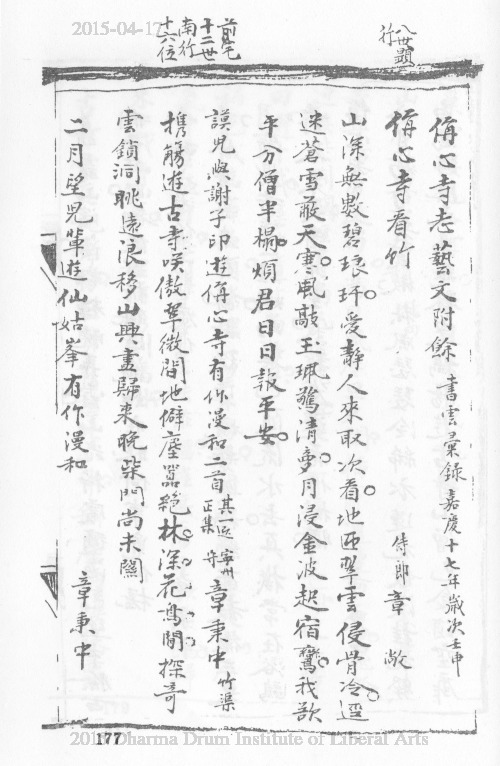 2015-04-17
八世顯
行
前宅
十二世
南行
十六位
偁心寺志藝文附餘 書雲彙錄 嘉慶十七年歲次壬申
偁心寺看竹 侍郎章敞
山深無數碧琅玕愛靜人來取次看地匝翠雲侵骨冷逕
迷蒼雪蔽天寒風敲玉珮驚清夢月浸金波起宿鸞我欲
平分僧半榻煩君日日報平安
謨兒與謝子印遊偁心寺有作漫和二首 其一延 正集 寧州 守 章秉中 竹渠
携觴遊古寺咲傲翠微間地僻塵囂絕林深花鳥閒探奇
雲鎖洞眺遠浪移山興盡歸来晚柴門尚未關
二月望兒輩遊仙姑峯有作漫和 章秉中
177
2015 Dharma Drum Institute of Liberal Arts